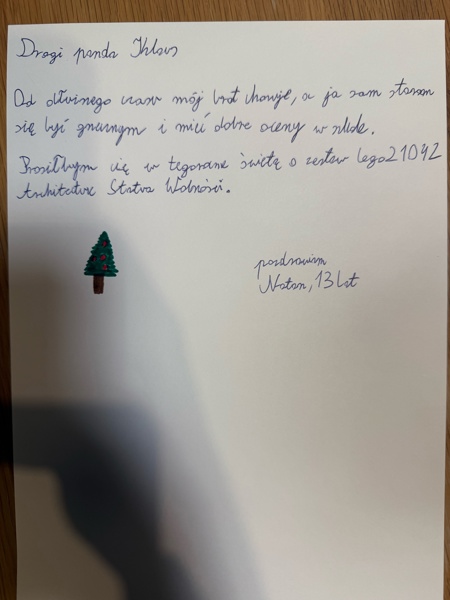 Drogi panda Klaus
Od dłuższego czasu mój brat choruje, a ja sam staram
się być grzecznym i mieć dobre oceny w szkole.
Prosiłbym cię w tegoroczne święta o zestaw lego 21042
Architekture Statua Wolności.
pozdrawiam
Natan, 13 lat